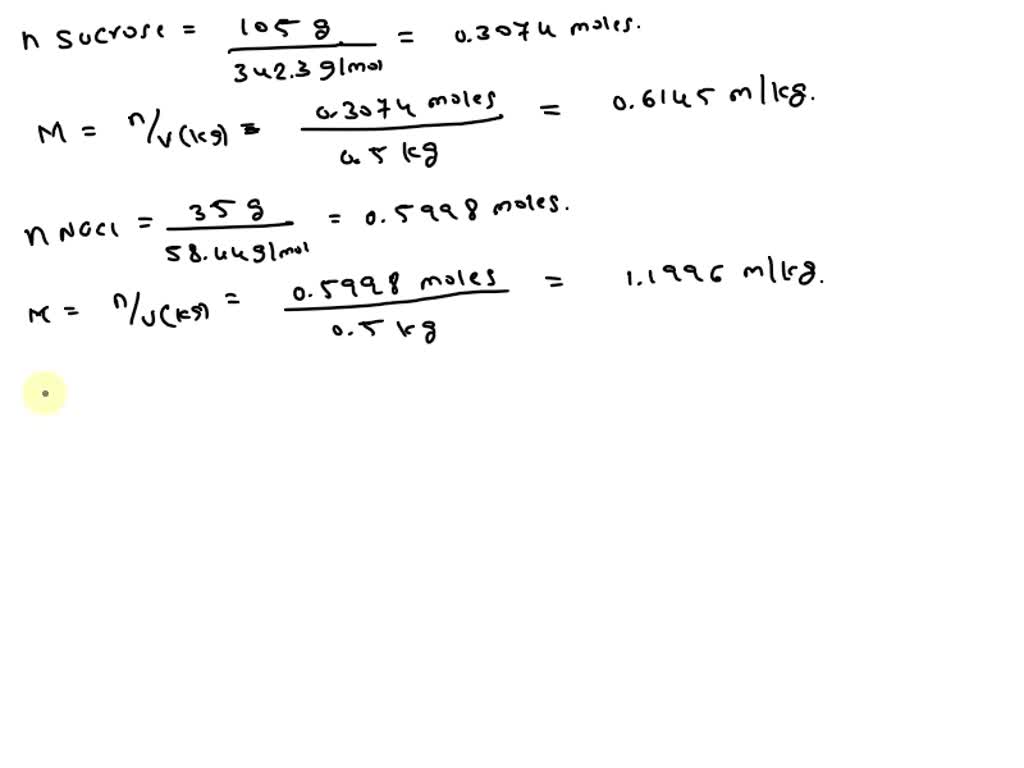 n sucrose = 105 g / 342.3 g/mol = 0.3074 moles.
M = n/v(kg) = 0.3074 moles / 0.5 kg = 0.6145 m/kg.
n NaCl = 35 g / 58.44 g/mol = 0.5998 moles.
M = n/v(kg) = 0.5998 moles / 0.5 kg = 1.1996 m/kg.